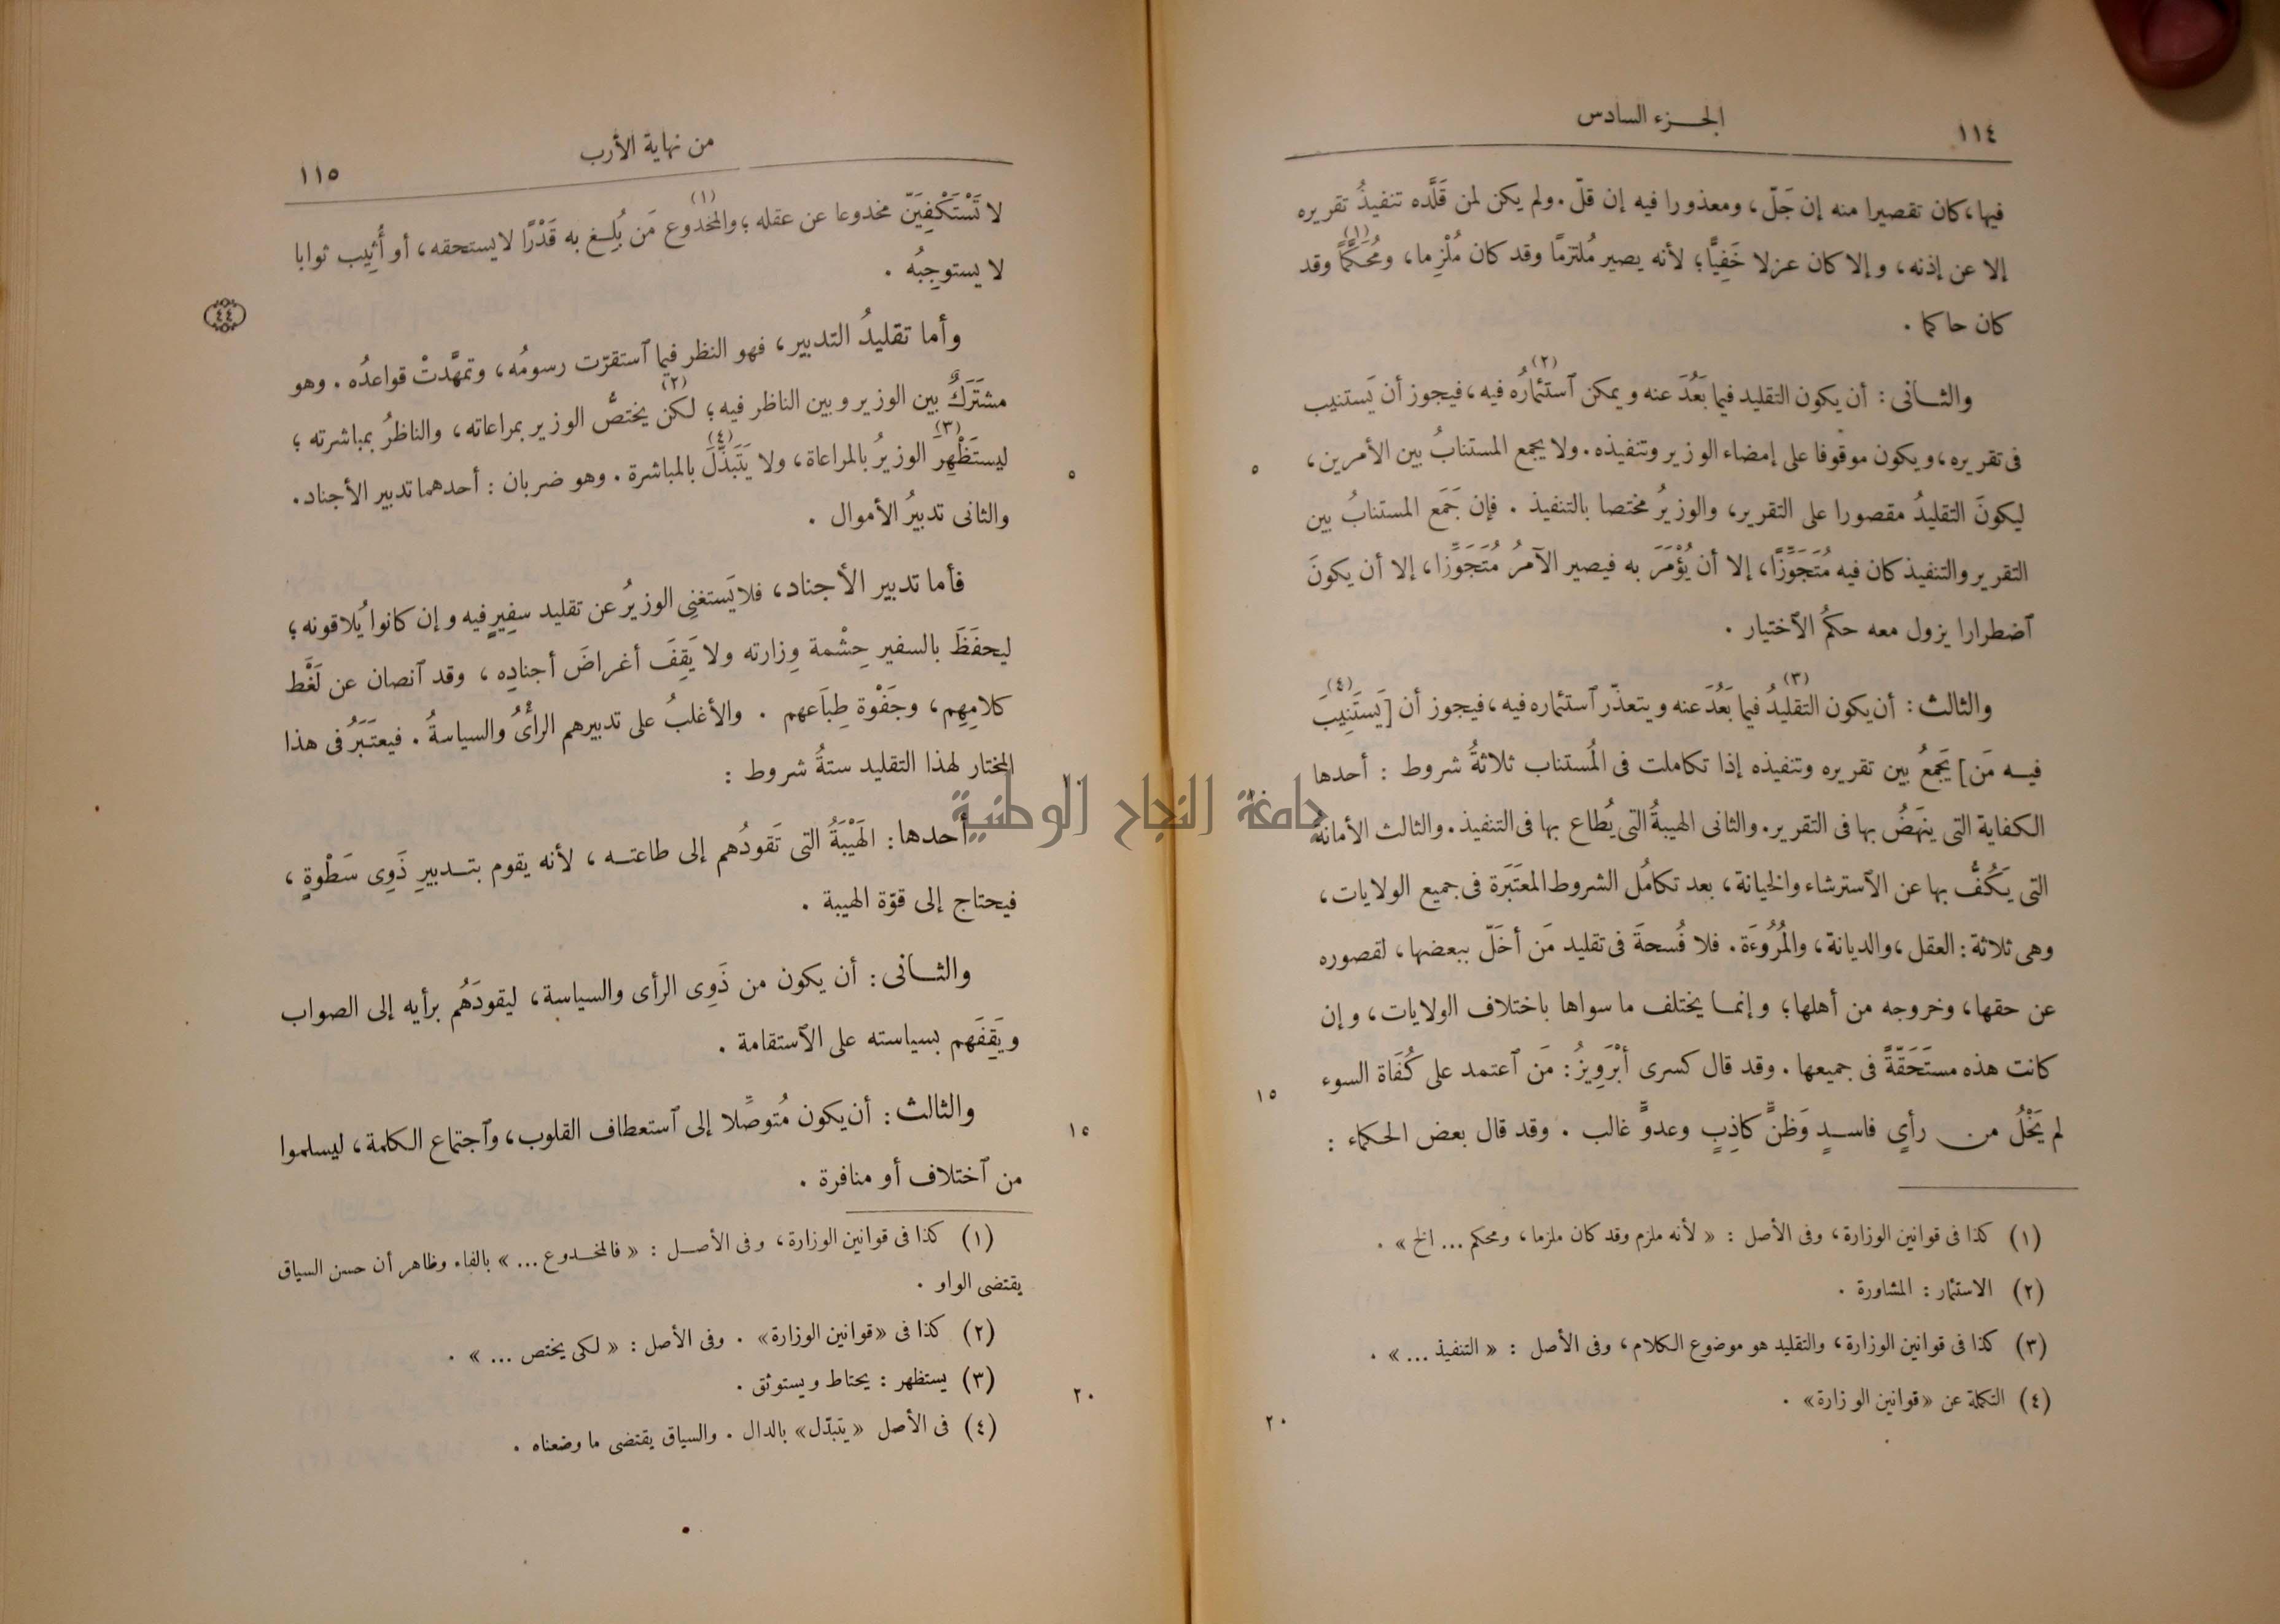 ١١٤
الجـزء السادس
فيها، كان تقصيرا منه إن جَلّ، ومعذورا فيه إن قلّ. ولم يكن لمن قَلَّده تنفيذُ تقريره
إلا عن إذنه، وإلا كان عزلا خَفِيًّا؛ لأنه يصير مُلتزمًا وقد كان مُلْزِما، ومُحَكَّمًا (١) وقد
كان حاكما .
والثـانى : أن يكون التقليد فيما بَعُدَ عنه ويمكن ٱستئمارُه (٢) فيه، فيجوز أن يَستنيب
فى تقريره، ويكون موقوفا على إمضاء الوزير وتنفيذه. ولا يجمع المستنابُ بين الأمرين،
٥
ليكونَ التقليدُ مقصورا على التقرير، والوزيرُ مختصا بالتنفيذ . فإن جَمَع المستنابُ بين
التقرير والتنفيذ كان فيه مُتَجَوِّزًا، إلا أن يُؤْمَرَ به فيصير الآمرُ مُتَجَوِّزا، إلا أن يكونَ
ٱضطرارا يزول معه حكمُ الٱختيار .
والثالث : أن يكون التقليدُ (٣) فيما بَعُدَ عنه ويتعذّر ٱستئماره فيه، فيجوز أن [يَستَنِيبَ (٤)
فيـه مَن] يَجمعُ بين تقريره وتنفيذه إذا تكاملت فى المُستناب ثلاثةُ شروط : أحدها
الكفاية التى ينهَضُ بها فى التقرير. والثانى الهيبةُ التى يُطاع بها فى التنفيذ. والثالث الأمانةُ
التى يَكُفُّ بها عن الٱسترشاء والخيانة، بعد تكامُل الشروط المعتَبَرة فى جميع الولايات،
وهى ثلاثة: العقل، والديانة، والمُرُوءَة. فلا فُسحةَ فى تقليد مَن أخَلّ ببعضها، لقصوره
عن حقها، وخروجه من أهلها؛ وإنمـا يختلف ما سواها باختلاف الولايات، وإن
كانت هذه مستَحَقّةً فى جميعها. وقد قال كسرى أبْرَوِيزُ: مَن ٱعتمد على كُفَاة السوء
١٥
لم يَخْلُ من رأيٍ فاسـدٍ وَظنٍّ كاذِبٍ وعدوٍّ غالب . وقد قال بعض الحكماء :
(١) كذا فى قوانين الوزارة، وفى الأصل : « لأنه ملزم وقد كان ملزما، ومحكم ... الخ » .
(٢) الاستئمار : المشاورة .
(٣) كذا فى قوانين الوزارة، والتقليد هو موضوع الكلام، وفى الأصل : « التنفيذ ... » .
(٤) التكملة عن «قوانين الوزارة» .
٢٠
من نهاية الأرب
١١٥
لا تَسْتَكْفِيَنّ مخدوعا عن عقله؛ والمخدوع (١) مَن بُلِـغ به قَدْرًا لا يستحقه، أو أُثِيب ثوابا
لا يستوجِبُه .
٤٤
وأما تقليدُ التدبير، فهو النظر فيما ٱستقرّت رسومُه، وتمهَّدتْ قواعدُه . وهو
مشتَرَكٌ بين الوزير وبين الناظر فيه؛ لكن (٢) يختصُّ الوزير بمراعاته، والناظرُ بمباشرته؛
ليستَظْهِرَ (٣) الوزيرُ بالمراعاة، ولا يَتَبَذَّلَ (٤) بالمباشرة . وهو ضربان : أحدهما تدبير الأجناد.
٥
والثانى تدبيرُ الأموال .
فأما تدبير الأجناد، فلا يَستغنِى الوزيرُ عن تقليد سفِيرٍ فيه وإن كانوا يُلاقونه؛
ليحفَظَ بالسفير حِشْمة وِزارته ولا يَقِفَ أغراضَ أجنادِه ، وقد ٱنصان عن لَغَط
كلامِهِم، وجَفْوة طِبَاعهم . والأغلبُ على تدبيرهم الرأىُ والسياسةُ . فيعتَبَرُ فى هذا
المختار لهذا التقليد ستةُ شروط :
١٠
جامعة النجاح الوطنية
أحدها: الهَيْبَةُ التى تَقودُهم إلى طاعتـه ، لأنه يقوم بتـدبيرِ ذَوِى سَطْوةٍ ،
فيحتاج إلى قوّة الهيبة .
والثـانى : أن يكون من ذَوِى الرأى والسياسة، ليقودَهُم برأيه إلى الصواب
ويَقِفَهم بسياسته على الٱستقامة .
والثالث : أن يكون مُتوصِّلا إلى ٱستعطاف القلوب، وٱجتماع الكلمة، ليسلموا
١٥
من ٱختلاف أو منافرة .
(١) كذا فى قوانين الوزارة، وفى الأصـل : « فالمخـدوع ... » بالفاء وظاهر أن حسن السياق
يقتضى الواو .
(٢) كذا فى «قوانين الوزارة» . وفى الأصل : « لكى يختص ... » .
(٣) يستظهر : يحتاط ويستوثق .
٢٠
(٤) فى الأصل «يتبدّل» بالدال . والسياق يقتضى ما وضعناه .